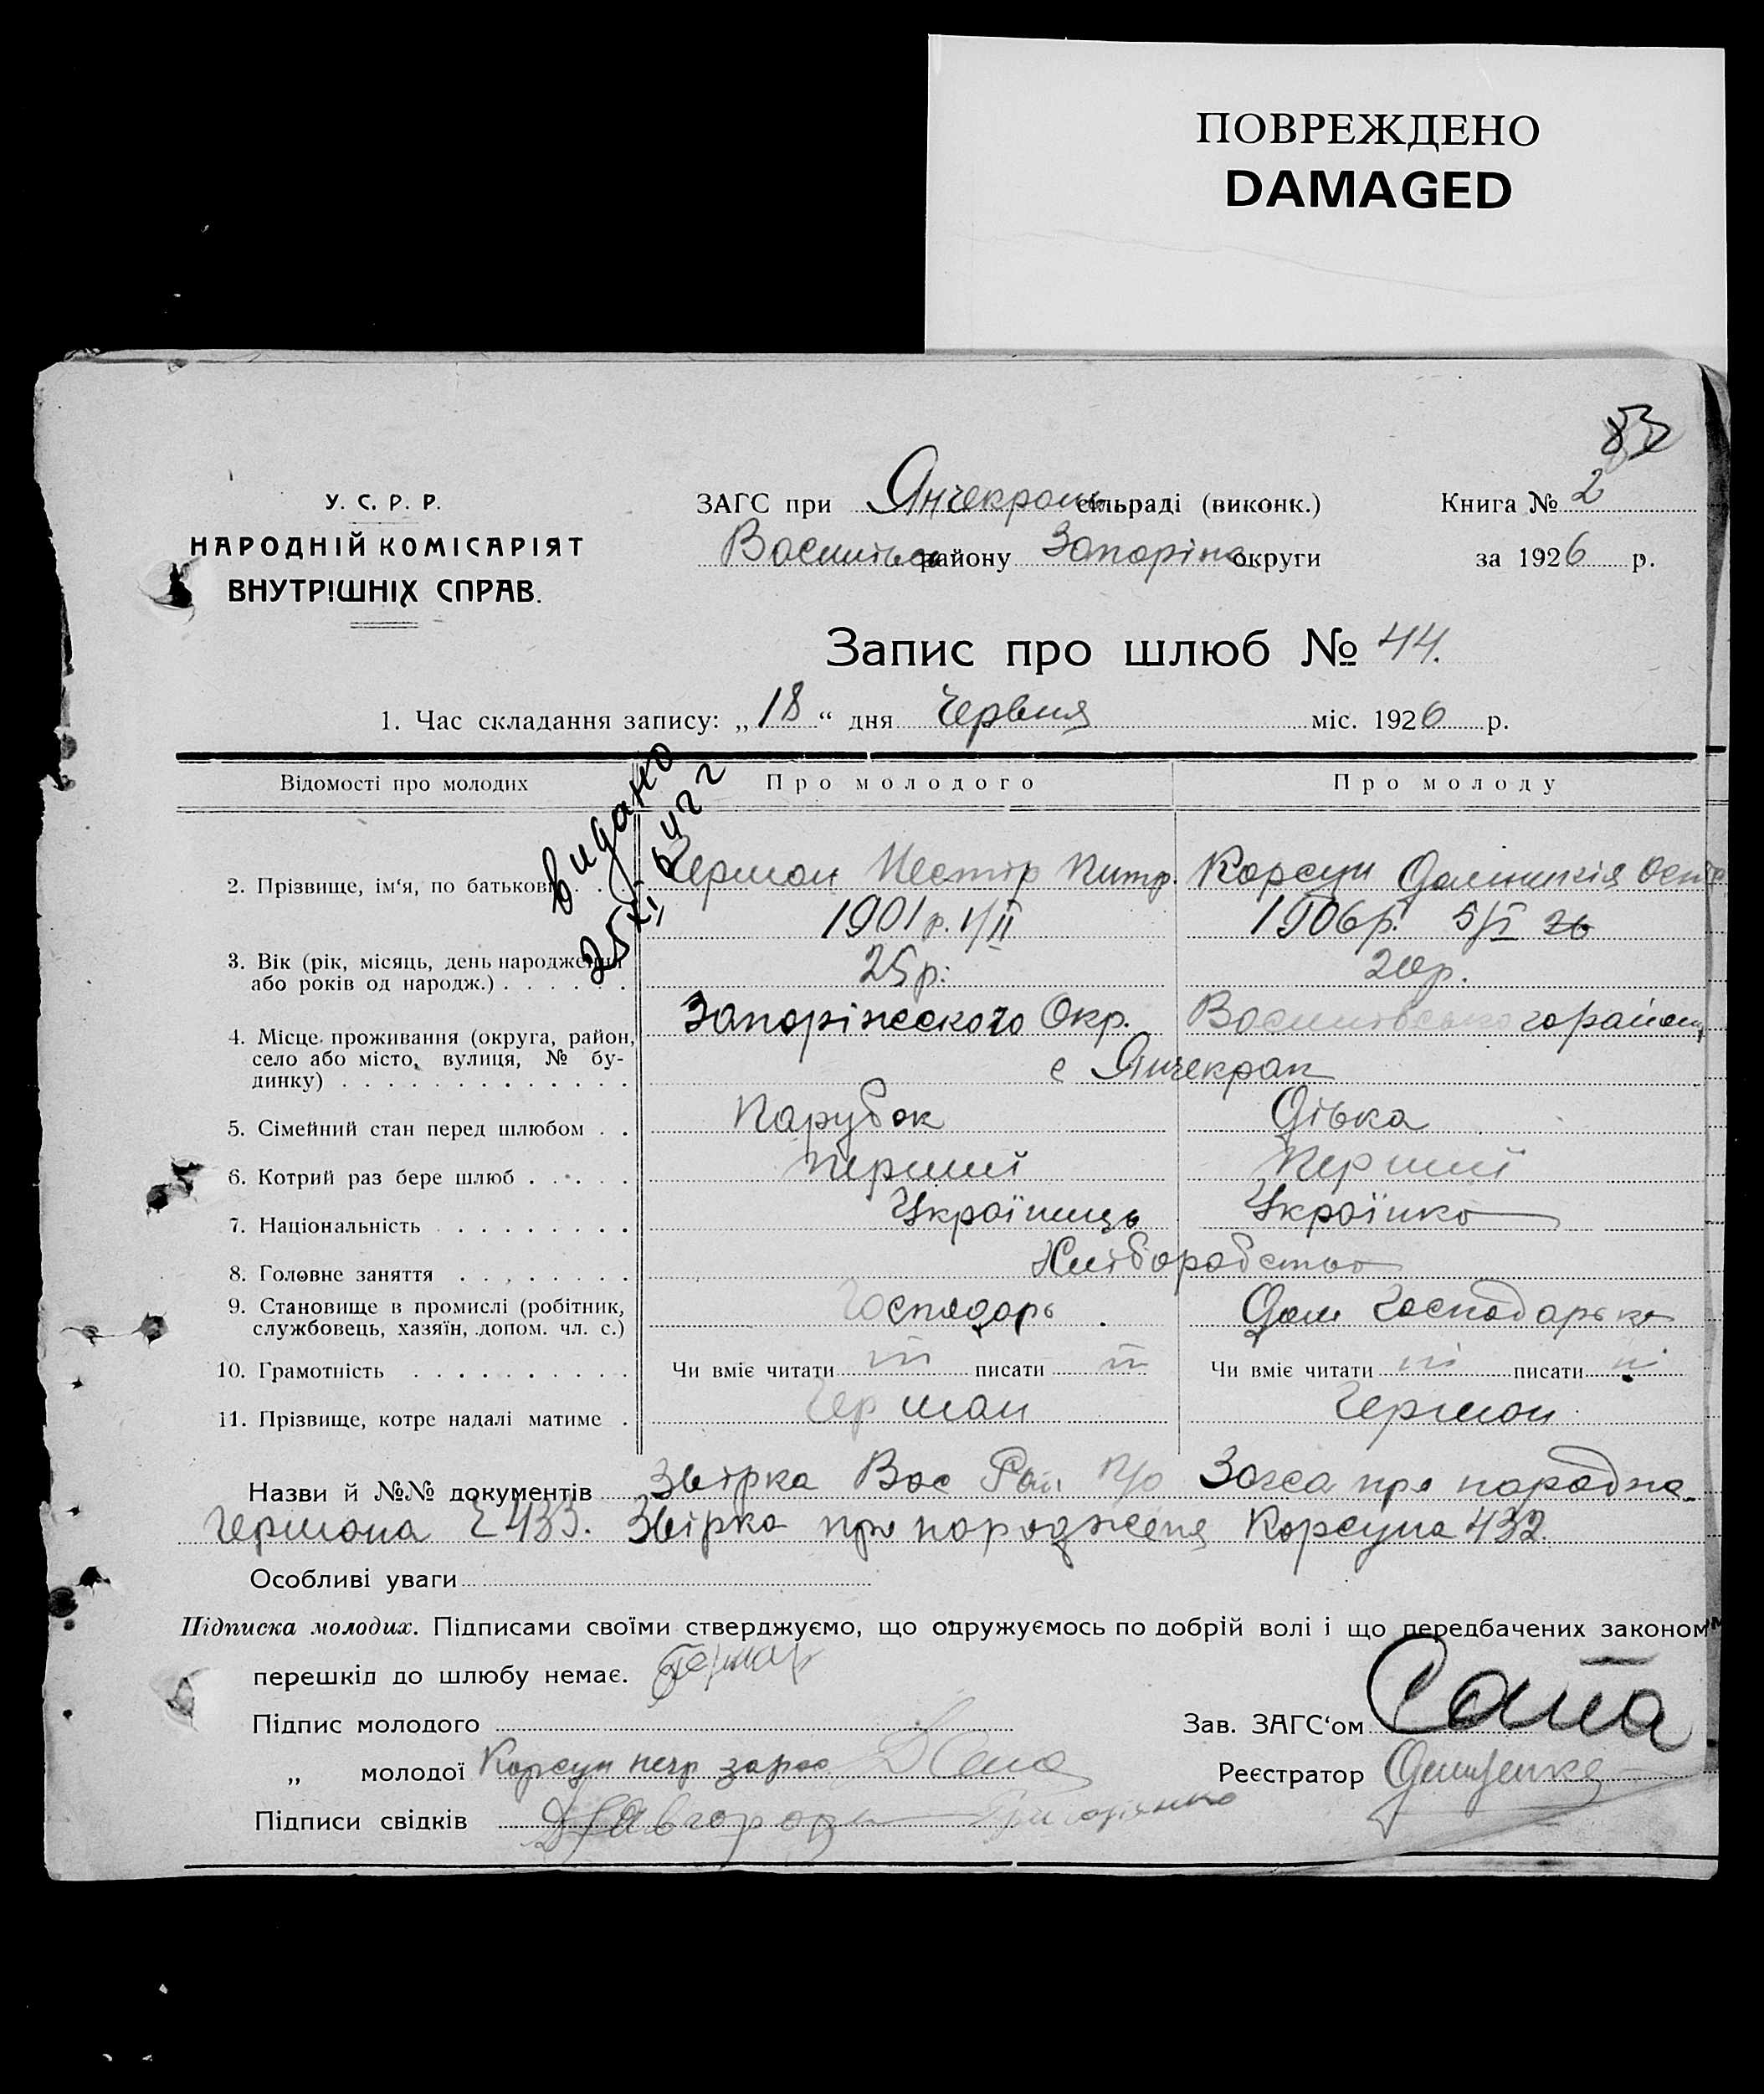 ПОВРЕЖДЕНО
DAMAGED
83
У. С. Р. Р.
НАРОДНІЙ КОМІСАРІЯТ
ВНУТРІШНІХ СПРАВ.
ЗАГС при Янчекрань сільраді (виконк.) Книга № 2
району Запоріжс округи за 1926 р.
Запис про шлюб № 44.
1. Час складання запису: „18“ дня Червня міс. 1926 р.
Відомості про молодих Про молодого Про молоду
видано
25/XI
2. Прізвище, ім‘я, по батькові . . . Герман Нестір Питр. Корсун
1901 р. 1/II 1906р. 5/I 26
3. Вік (рік, місяць, день народження або років од народж.) . . . . . . 25 р. 20 р.
4. Місце проживання (округа, район, село або місто, вулиця, № бу-
динку) . . . . . . . . . . . . . Запоріжского Окр. Василівського району
с Янчекрак
5. Сімейний стан перед шлюбом . . Парубок Дівка
6. Котрий раз бере шлюб . . . . . Перший Перший
7. Національність . . . . . . . . . Українець Українка
8. Головне заняття . . . . . . . . Хліборобство
9. Становище в промислі (робітник, службовець, хазяїн, допом. чл. с.) Господарь. Дом Господарька
10. Грамотність . . . . . . . . . . Чи вміє читати ні писати ні Чи вміє читати ні писати ні
11. Прізвище, котре надалі матиме . Герман Герман
Назви й №№ документів Звірка Вас Рай Загса про народже
Германа 433. Звірка про народженя Корсуна 432.
Особливі уваги
Підписка молодих. Підписами своїми стверджуємо, що одружуємось по добрій волі і що передбачених законом
перешкід до шлюбу немає. Герман
Підпис молодого Зав. ЗАГС‘ом
„ молодої Корсун негр за Реєстратор
Підписи свідків